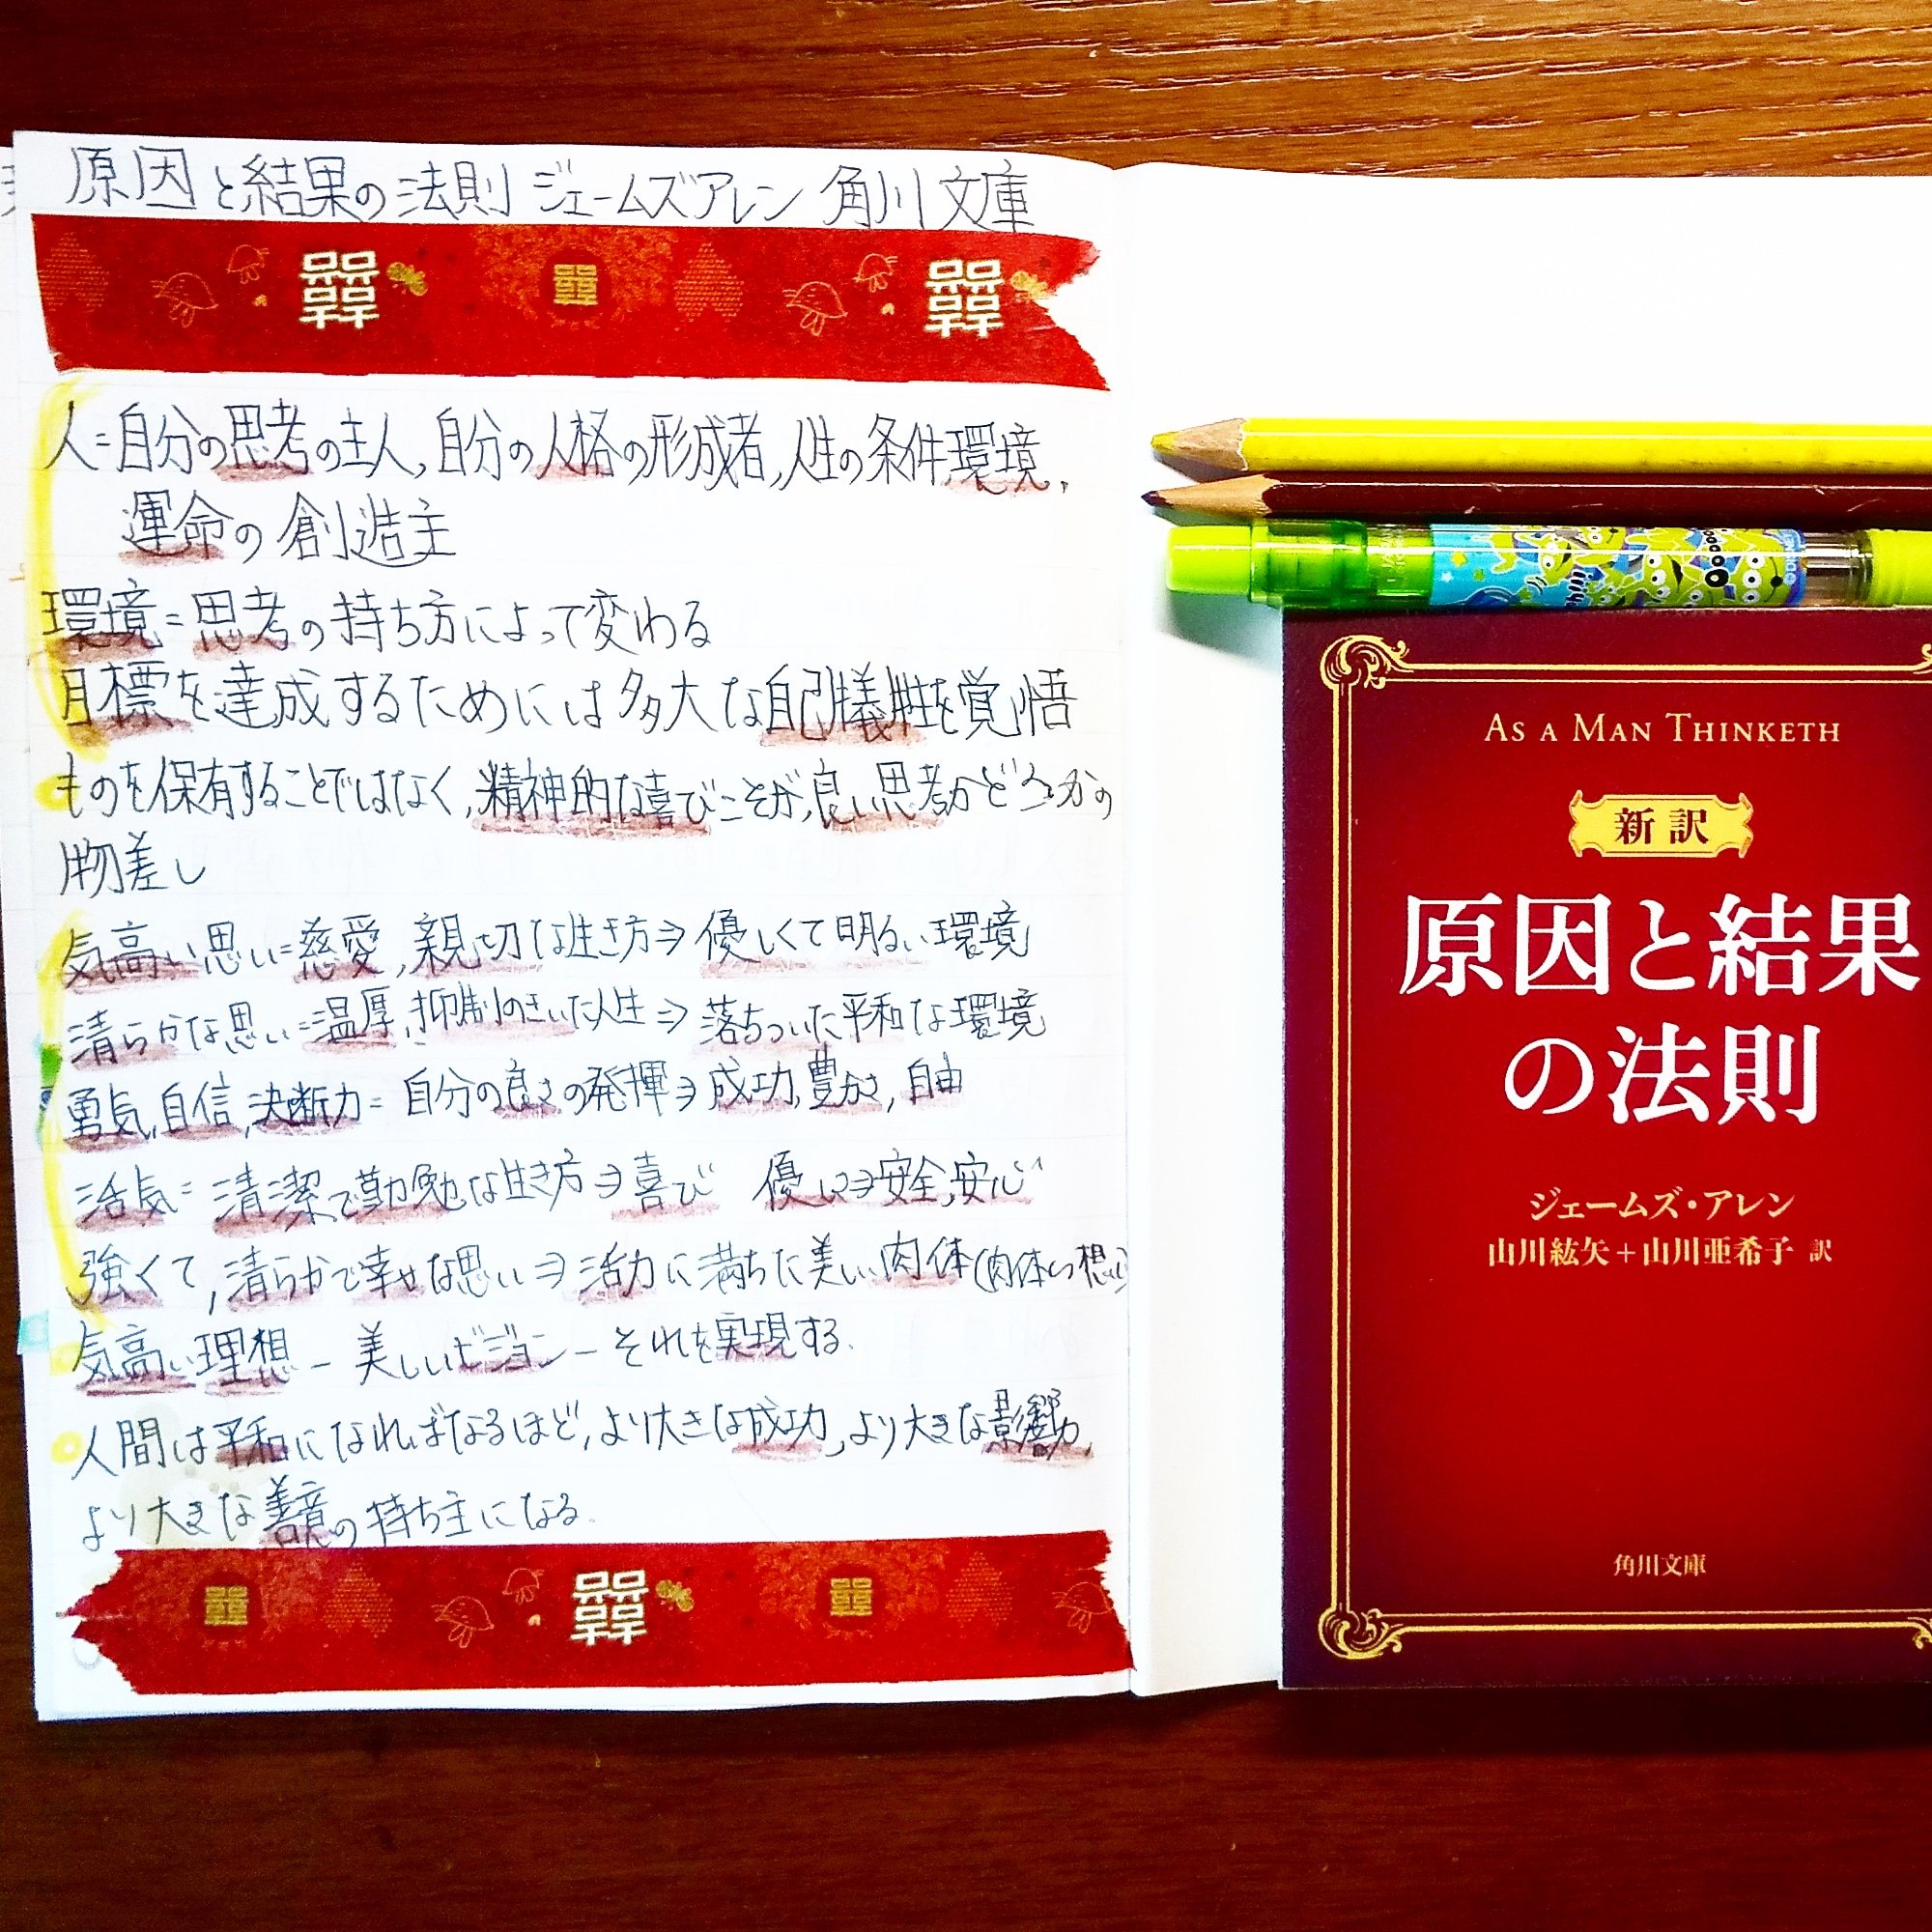 原因と結果の法則 ジェームズアレン 角川文庫
人=自分の思考の主人,自分の人格の形成者,人生の条件,環境,
運命の創造主
環境=思考の持ち方によって変わる
目標を達成するためには多大な自己犠牲を覚悟
ものを保有することではなく,精神的な喜びこそが,良い思考かどうかの
物差し
気高い思い=慈愛,親切な生き方⇒優しくて明るい環境
清らかな思い=温厚,抑制のきいた人生⇒落ちついた平和な環境
勇気,自信,決断力=自分の良さの発揮⇒成功,豊かさ,自由
活気=清潔で勤勉な生き方⇒喜び 優しさ⇒安全,安心
強くて,清らかで幸せな思い⇒活力に満ちた美しい肉体
気高い理想-美しいビジョン-それを実現する.
人間は平和になればなるほど,より大きな成功,より大きな影響力,
より大きな善意の持ち主になる.
AS A MAN THINKETH
新訳
原因と結果
の法則
ジェームズ・アレン
山川紘矢+山川亜希子 訳
角川文庫